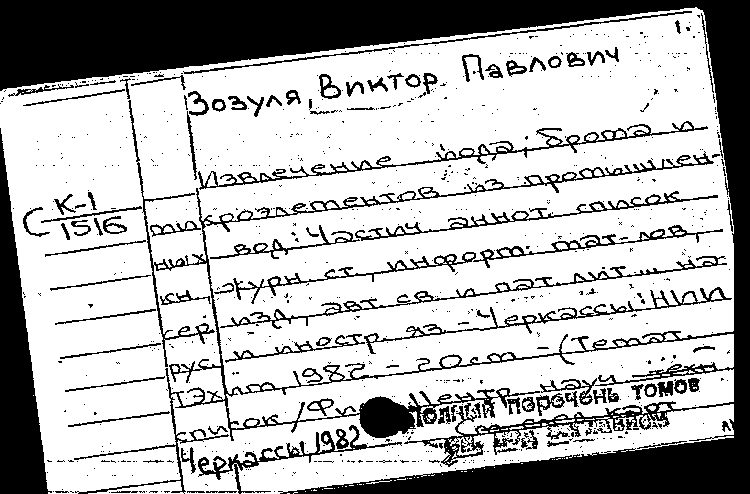 1.
Зозуля, Виктор Павлович
Извлечение иода, брома и
С К-1
1516
микроэлементов из промышлен-
ных вод: Частич. аннот. список
кн., журн. ст., информ. мат-лов,
сер. изд., авт. св. и пат. лит... на
рус. и иностр. яз. - Черкассы: НИИ
ТЭхим, 1982. - 20 см - (Темат.
список / Центр. науч. техн
Полный перечень томов
Черкассы, 1982